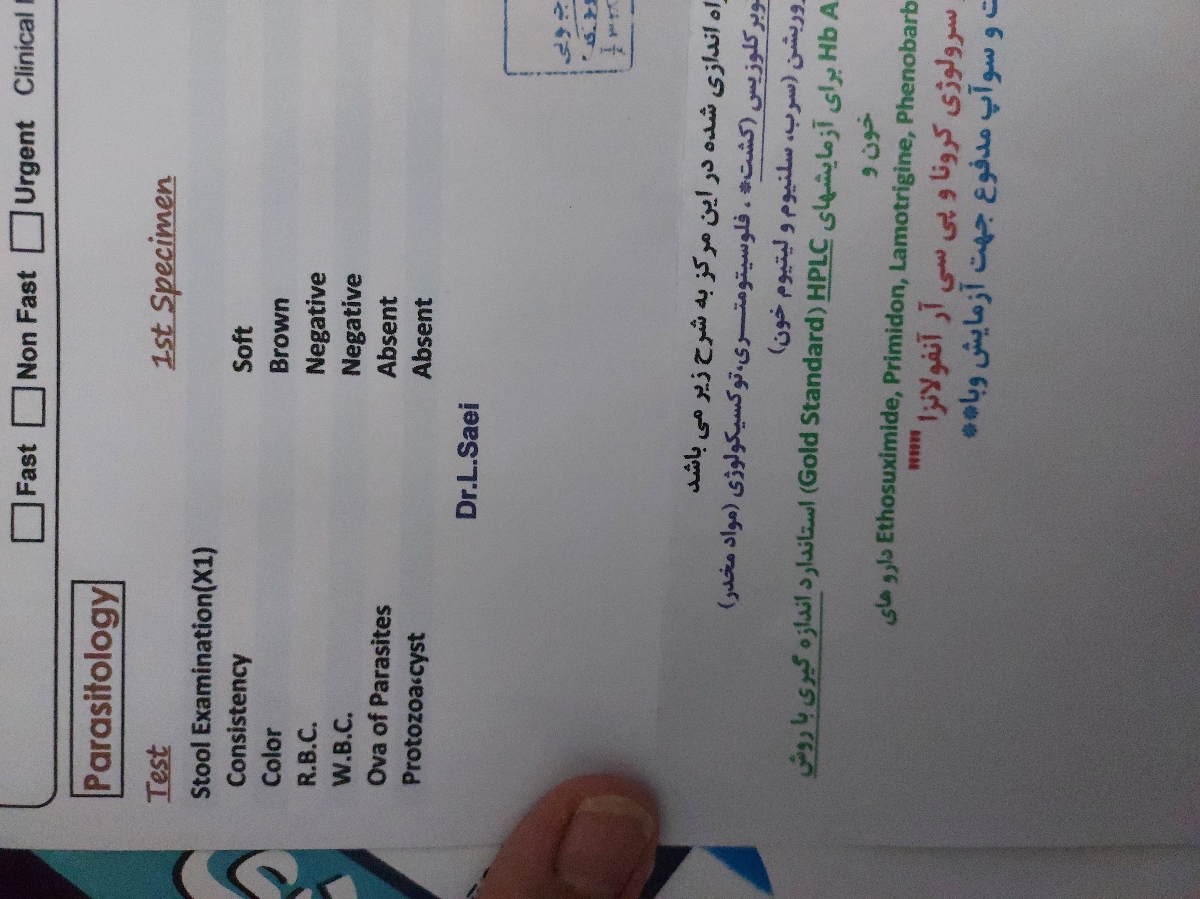 Fast Non Fast Urgent Clinical
Parasitology
Test 1st Specimen
Stool Examination(X1)
Consistency Soft
Color Brown
R.B.C. Negative
W.B.C. Negative
Ova of Parasites Absent
Protozoa‹cyst Absent
Dr.L.Saei
اندازی شده در این مرکز به شرح زیر می باشد
(کشت*، فلوسیتومتری،توکسیکولوژی (مواد مخدر)
(سرب، سلنیوم و لیتیوم خون)
استاندارد اندازه گیری با روش HPLC (Gold Standard) برای آزمایشهای Hb A
خون و
دارو های Ethosuximide, Primidon, Lamotrigine, Phenobarb
سرولوژی کرونا و پی سی آر آنفولانزا """
و سوآپ مدفوع جهت آزمایش وبا**